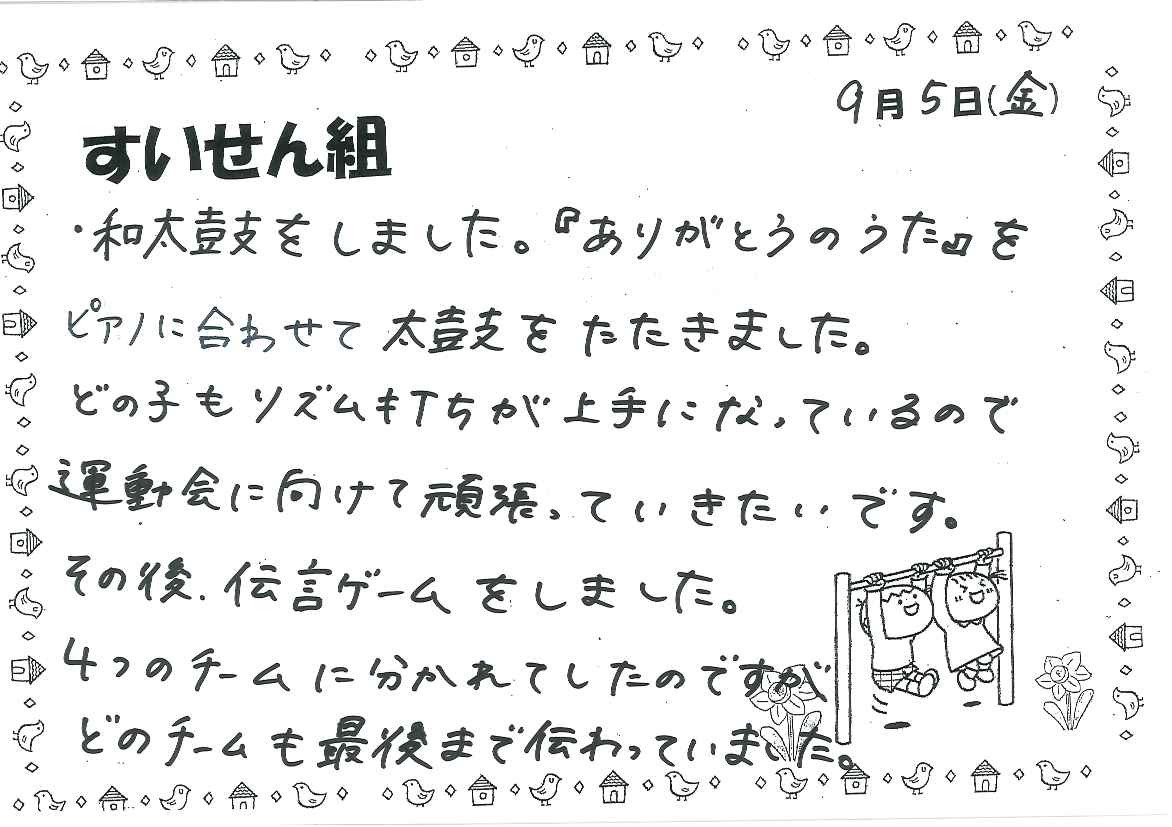 9月5日(金)
すいせん組
・和太鼓をしました。『ありがとうのうた』を
ピアノに合わせて太鼓をたたきました。
どの子もリズム打ちが上手になっているので
運動会に向けて頑張っていきたいです。
その後、伝言ゲームをしました。
4つのチームに分かれてしたのですが
どのチームも最後まで伝わっていました。